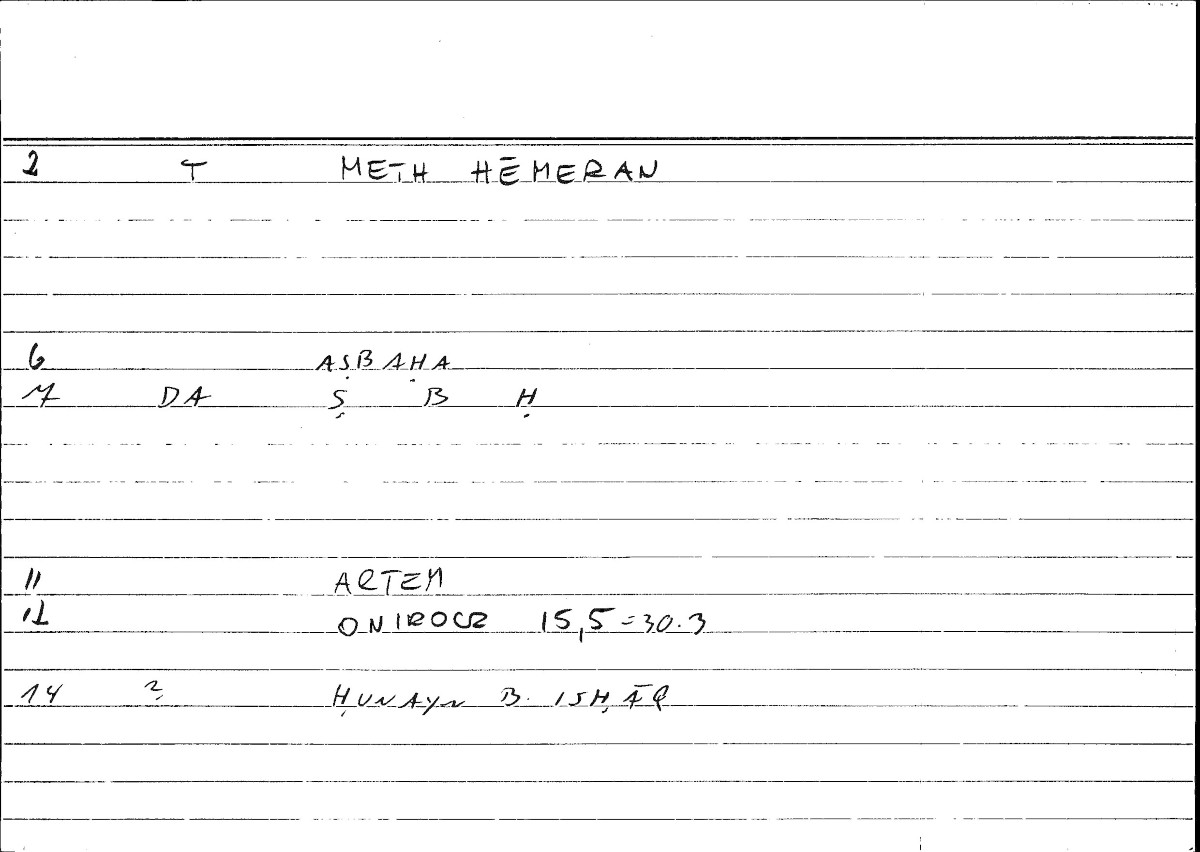 2 T METH HĒMERAN
6 AṢBAḤA
7 DA Ṣ B Ḥ
11 ARTEM
12 ONIROCR 15,5=30.3
14 2 ḤUNAYN B. ISḤĀQ